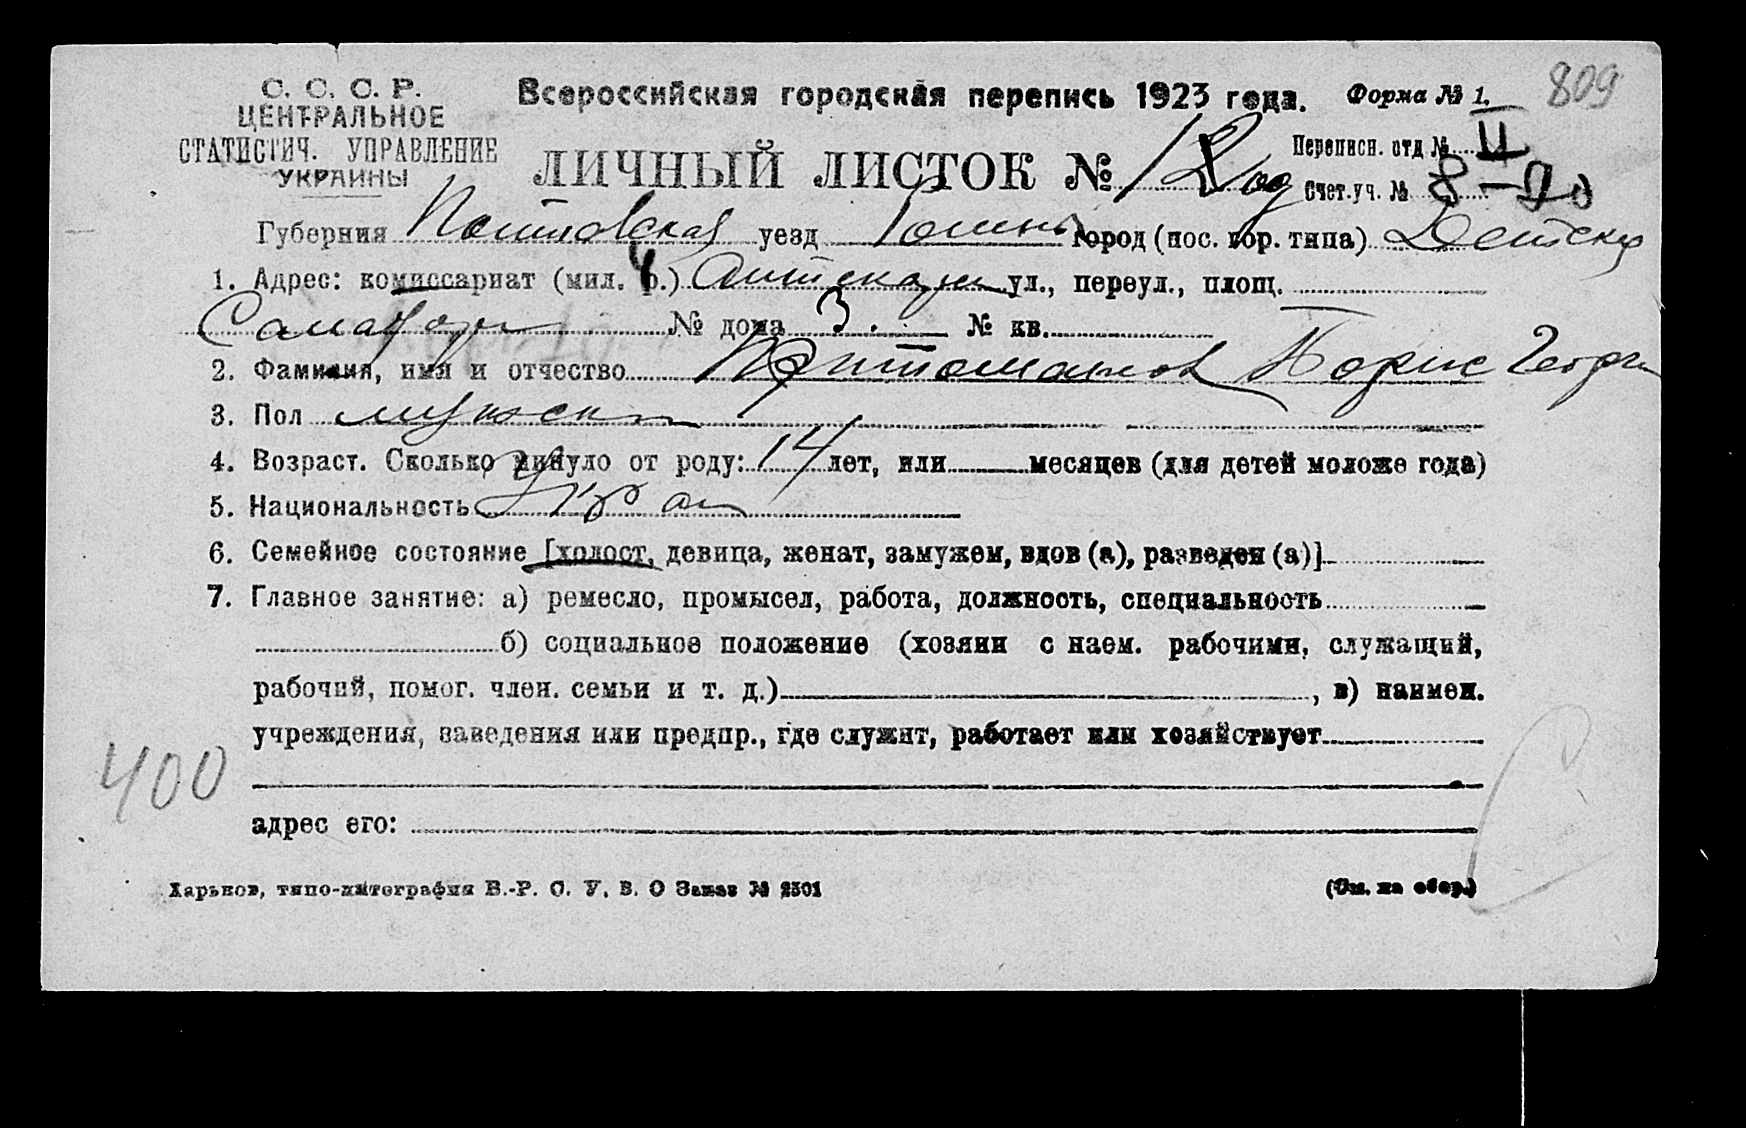 809
С. С. С. Р.
ЦЕНТРАЛЬНОЕ
СТАТИСТИЧ. УПРАВЛЕНИЕ
УКРАИНЫ
Всероссийская городская перепись 1923 года. Форма № 1.
Переписн. отд № II
ЛИЧНЫЙ ЛИСТОК №
Счет.уч. № 8
Губерния Полтавская уезд город (пос. гор. типа) Детский
1. Адрес: комиссариат (мил. р.) ул., переул., площ.
№ дома 3. № кв.
2. Фамилия, имя и отчество Борис Георги
3. Пол мужск
4. Возраст. Сколько минуло от роду: 14 лет, или месяцев (для детей моложе года)
5. Национальность Укра
6. Семейное состояние [холост, девица, женат, замужем, вдов (а), разведен (а)]
7. Главное занятие: а) ремесло, промысел, работа, должность, специальность
б) социальное положение (хозяин с наем. рабочими, служащий,
рабочий, помог. член. семьи и т. д.) , в) наимен.
учреждения, заведения или предпр., где служит, работает или хозяйствует
400
адрес его:
Харьков, типо-литография В.-Р. С. У. В. О Заказ № 2301 (См. на обор.)